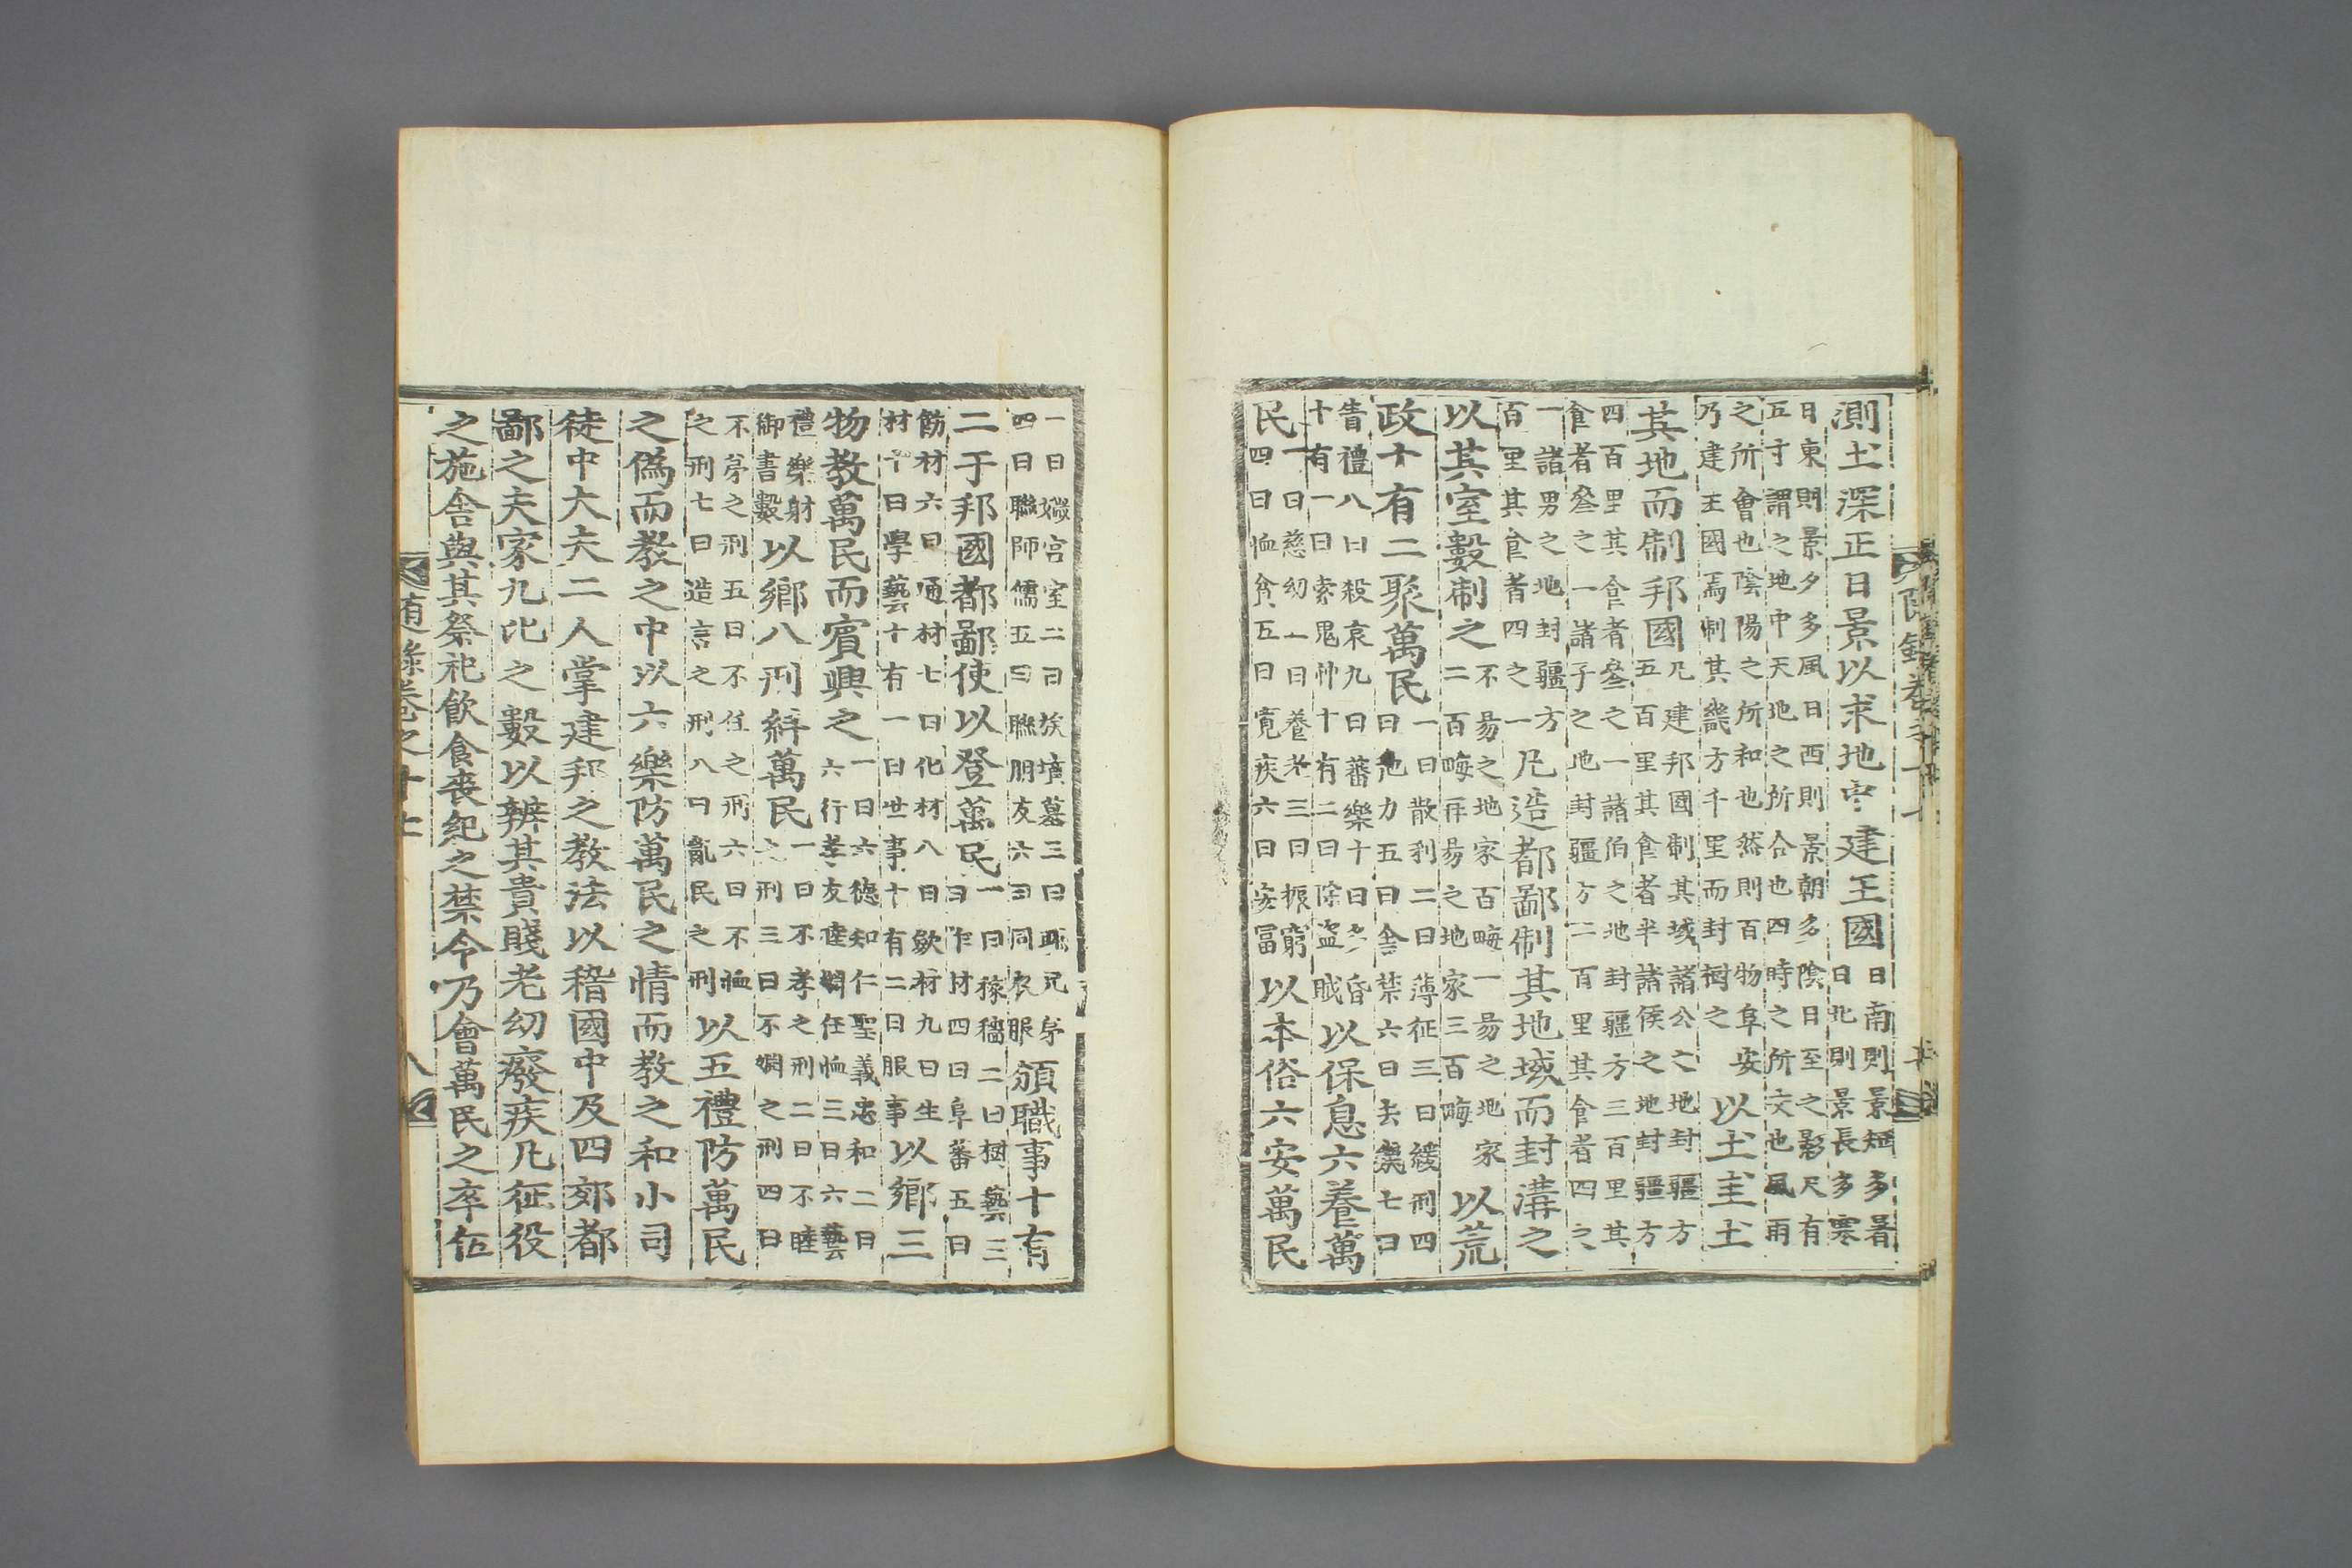 測土深正日景以求地中建王國日南則景短多暑日北則景長多寒
日東則景夕多風日西則景朝多陰日至之影尺有五寸謂之地中天地之所合也四時之所交也風雨
之所會也陰陽之所和也然則百物阜安乃建王國焉制其畿方千里而封樹之以土圭土
其地而制邦國凡建邦國制其域諸公之地封疆方五百里其食者半諸侯之地封疆方
四百里其食者叄之一諸伯之地封疆方三百里其食者叄之一諸子之地封疆方二百里其食者四之
一諸男之地封疆方百里其食者四之一凡造都鄙制其地域而封溝之
以其室數制之不易之地家百畮一易之地家二百畮再易之地家三百畮以荒
政十有二聚萬民一曰散利二曰薄征三曰緩刑四曰弛力五曰舍禁六曰去幾七曰
眚禮八曰殺哀九曰蕃樂十曰多昏十有一曰索鬼神十有二曰除盜賊以保息六養萬
民一曰慈幼二曰養老三曰振窮四曰恤貧五曰寬疾六曰安富以本俗六安萬民
一曰媺宮室二曰族墳墓三曰聯兄弟四曰聯師儒五曰聯朋友六曰同衣服頒職事十有
二于邦國都鄙使以登萬民一曰稼穡二曰樹藝三曰作材四曰阜蕃五曰
飭材六曰通材七曰化材八曰斂材九曰生材十曰學藝十有一曰世事十有二曰服事以鄉三
物教萬民而賓興之一曰六德知仁聖義忠和二曰六行孝友睦婣任恤三曰六藝
禮樂射御書數以鄉八刑糾萬民一曰不孝之刑二曰不睦之刑三曰不婣之刑四曰
不弟之刑五曰不任之刑六曰不恤之刑七曰造言之刑八曰亂民之刑以五禮防萬民
之僞而教之中以六樂防萬民之情而教之和小司
徒中大夫二人掌建邦之教法以稽國中及四郊都
鄙之夫家九比之數以辨其貴賤老幼癈疾凡征役
之施舍與其祭祀飮食喪紀之禁令乃會萬民之卒伍
隨錄卷之十七
八